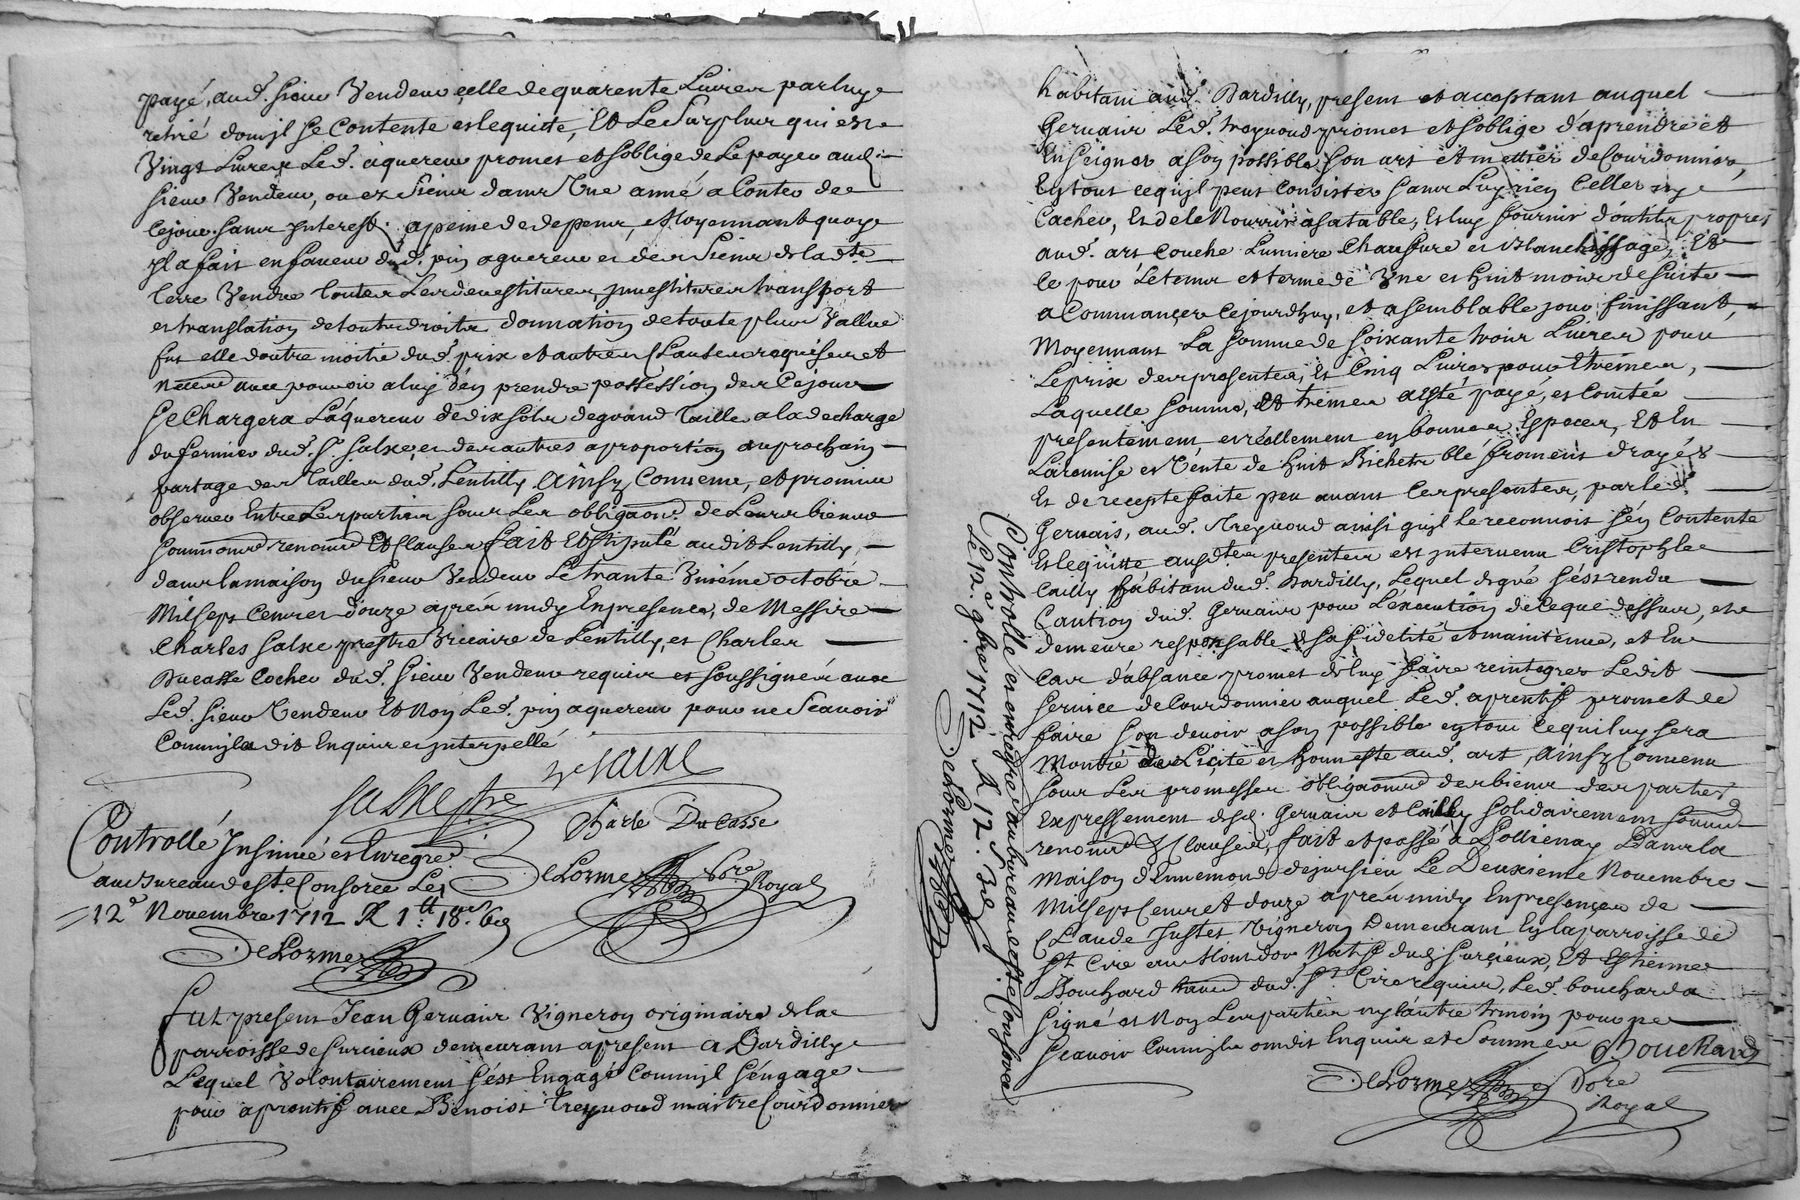 payé, aud. sieur Vendeur celle de quarente Livres par luy
retiré dont jl se Contente et le quitte, Et Le Surplus qui est
Vingt Livres Led. aquereur promet et soblige de Le payer aud.
sieur Vendeur, ou es siens dans Une anné a Conter de
Cejour sans Interest. apeine de depens, et Moyennant quoy
jl a fait en faveur dud. pin aquereur et des siens de lad.te
terre Vendue toutes Les devestitures, jnvestitures transport
et translation de toute droits donnation de toute plus Vallue
fut elle d'outre moitié dud. prix et autres Clauses requises et
necess.res avec pouvoir a luy d'en prendre possession des Cejour
se Chargera L'aquereur de dix sols de grand Taille a la decharge
du fermier dud. Sr. Salxe, et des autres a proportion au prochain
partage des Tailles dud. Lentilly. Ainsy Convenu, et promis
observer Entre Les parties sous Les obligaons. de Leurs biens
soumons. renons. Et Clauses fait Et stipulé audit Lentilly,
dans la maison du sieur Vendeur Le trante Uniéme octobre
Mil sept Cent et douze aprés midy En presence, de Messire
Charles Salxe prestre Vicaire de Lentilly, et Charles
Ducasse Cocher dud. sieur Vendeur requis et soussignés avec
Led. sieur Vendeur Et Non Led. pin aquereur pour ne Scavoir
Comm'jl a dit Enquis et jnterpellé
Salxe ptre
Charle Ducasse
DeLorme Nore.
Royal
Controllé Insinué et Enregré.
au Bureau de Ste. Consorce Le
12e Novembre 1712 R 1tt 18s 6d
DeLorme
Fut present Jean Gervais Vigneron originaire de la
parroisse de Surcieux demeurant a present a Dardilly
Lequel Volontairement s'ést Engagé Comm'jl s'éngage
pour aprentif avec Benoist Treynoud maitre Courdonnier
habitant aud. Dardilly, present et acceptant auquel
Gervais Led. Treynoud promet et s'oblige d'aprendre et
Enseigner a son possible, son art et mettier de Courdonnier,
En tout ce qu'jl peut Consister sans Luy rien Celler ny
Cacher, Et de le Nourrir a sa table, Et luy fournir d'outils propres
aud. art couche Lumiere Chaussure et Blanchissage, Et
Ce pour Le tems et terme de Une et huit mois de suite
a Commancer Cejourd'huy, et a semblable jour finissant,
Moyennant La somme de soixante trois Livres pour
Le prix des presentes, Et Cinq Livres pour threines,
Laquelle somme, Et treines a esté payé, et Comtée
presentement et réellement en bonnes Especes, Et En
La remise et Vente de huit Bichets blé froment
Et de recepte faite peu avant Ces presentes, par led.
Gervais, aud. Treynoud ainsi qu'jl Le reconnoit s'én Contente
Et le quitte ausd.tes presentes est jntervenu Cristophle
Cailly habitant dud. Dardilly, Lequel de gré s'ést rendu
Caution dud. Gervais pour L'éxecution de Ceque dessus, et
demeure responsable de sa fidelité et maintenue, et En
Cas d'absance promet de luy faire reintegrer Ledit
service de Courdonnier auquel Led. aprentif promet de
faire son devoir a son possible en tout Cequi luy sera
Montré de Licite et honneste aud. art, Ainsy Convenu
sous Les promesses obligaons. des biens des parties
Expressement desd. Gervais et Cailly solidairement soumons.
renons. & Clauses, fait et passé a Pollienay Dans la
Maison d'Ennemond dejursieu Le Deuxieme Novembre
Mil sept Cent et douze aprés midy En presence de
Claude Justet Vigneron Demeurant En la parroisse de
St. Cire au Mont d'or Natif dud. Surcieux, Et Estienne
Bouchard dud. St. Cire requis, Led. bouchard a
signé et Non Les parties ny l'autre temoin pour ne
Scavoir Comm'jls ont dit Enquis et Sommés
Bouchard
DeLorme Nore
Royal
Controllé et enregré. au bureau de Ste. Consorce
Le 12e 9bre 1712. R 12s 3d
DeLorme